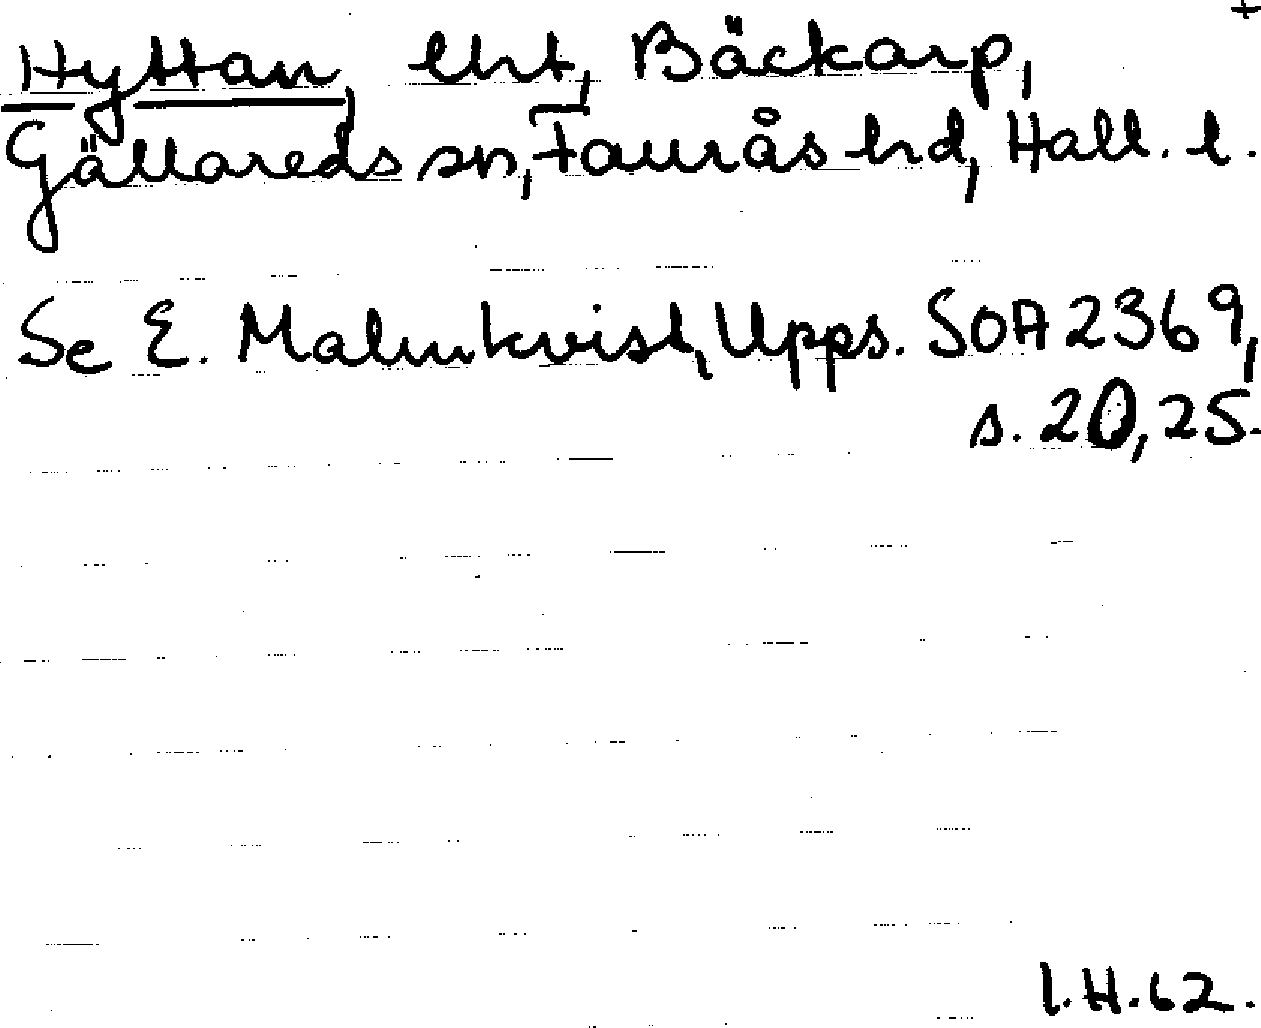 +
Hyttan, lht, Bäckarp,
Gällareds sn, Faurås hd, Hall. l.
Se E. Malmkvist, Upps. SOA 2369,
s. 20, 25.
I.H.62.